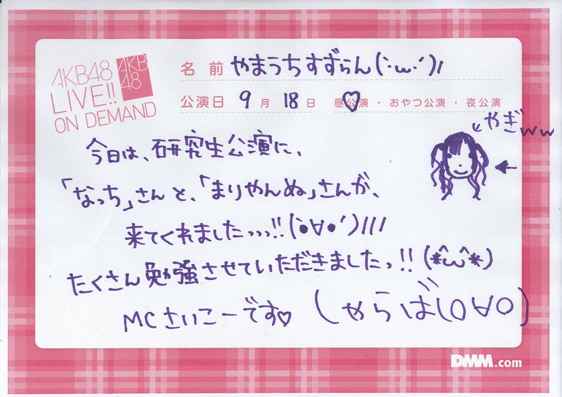 AKB48
LIVE!!
ON DEMAND
AKB
48
名 前 やまうちすずらん(˙ω˙)ﾉﾉ
公演日 9 月 18 日 昼公演・おやつ公演・夜公演
やぎww
今日は、研究生公演に、
「なっち」さんと、「まりやんぬ」さんが、
来てくれました、、、!!(•̀∀•́)ﾉﾉﾉ
たくさん勉強させていただきましたっ!!(*^ω^*)
MCさいこーです♡
(やらば(O∀O)
DMM.com